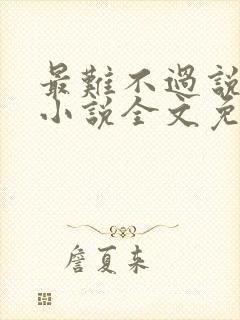 最難不過說
小說全文免
詹夏来